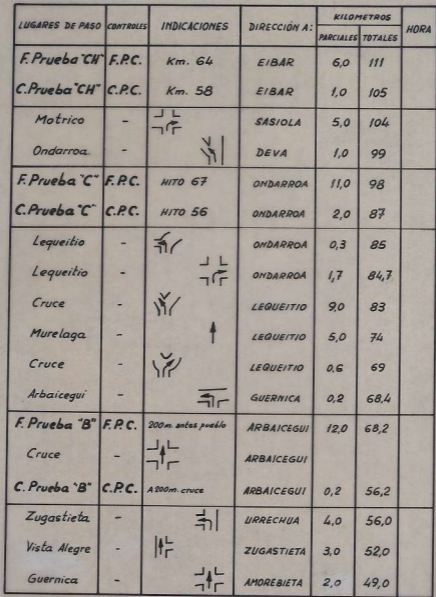 LUGARES DE PASO CONTROLES INDICACIONES DIRECCIÓN A: KILOMETROS HORA
PARCIALES TOTALES
F. Prueba "CH" F.P.C. Km. 64 EIBAR 6,0 111
C. Prueba "CH" C.P.C. Km. 58 EIBAR 1,0 105
Motrico - SASIOLA 5,0 104
Ondarroa - DEVA 1,0 99
F. Prueba "C" F.P.C. HITO 67 ONDARROA 11,0 98
C. Prueba "C" C.P.C. HITO 56 ONDARROA 2,0 87
Lequeitio - ONDARROA 0,3 85
Lequeitio - ONDARROA 1,7 84,7
Cruce - LEQUEITIO 9,0 83
Murelaga - LEQUEITIO 5,0 74
Cruce - LEQUEITIO 0,6 69
Arbaicegui - GUERNICA 0,2 68,4
F. Prueba "B" F.P.C. 200 m. antes pueblo ARBAICEGUI 12,0 68,2
Cruce - ARBAICEGUI
C. Prueba "B" C.P.C. A 200 m. cruce ARBAICEGUI 0,2 56,2
Zugastieta - URRECHUA 4,0 56,0
Vista Alegre - ZUGASTIETA 3,0 52,0
Guernica - AMOREBIETA 2,0 49,0